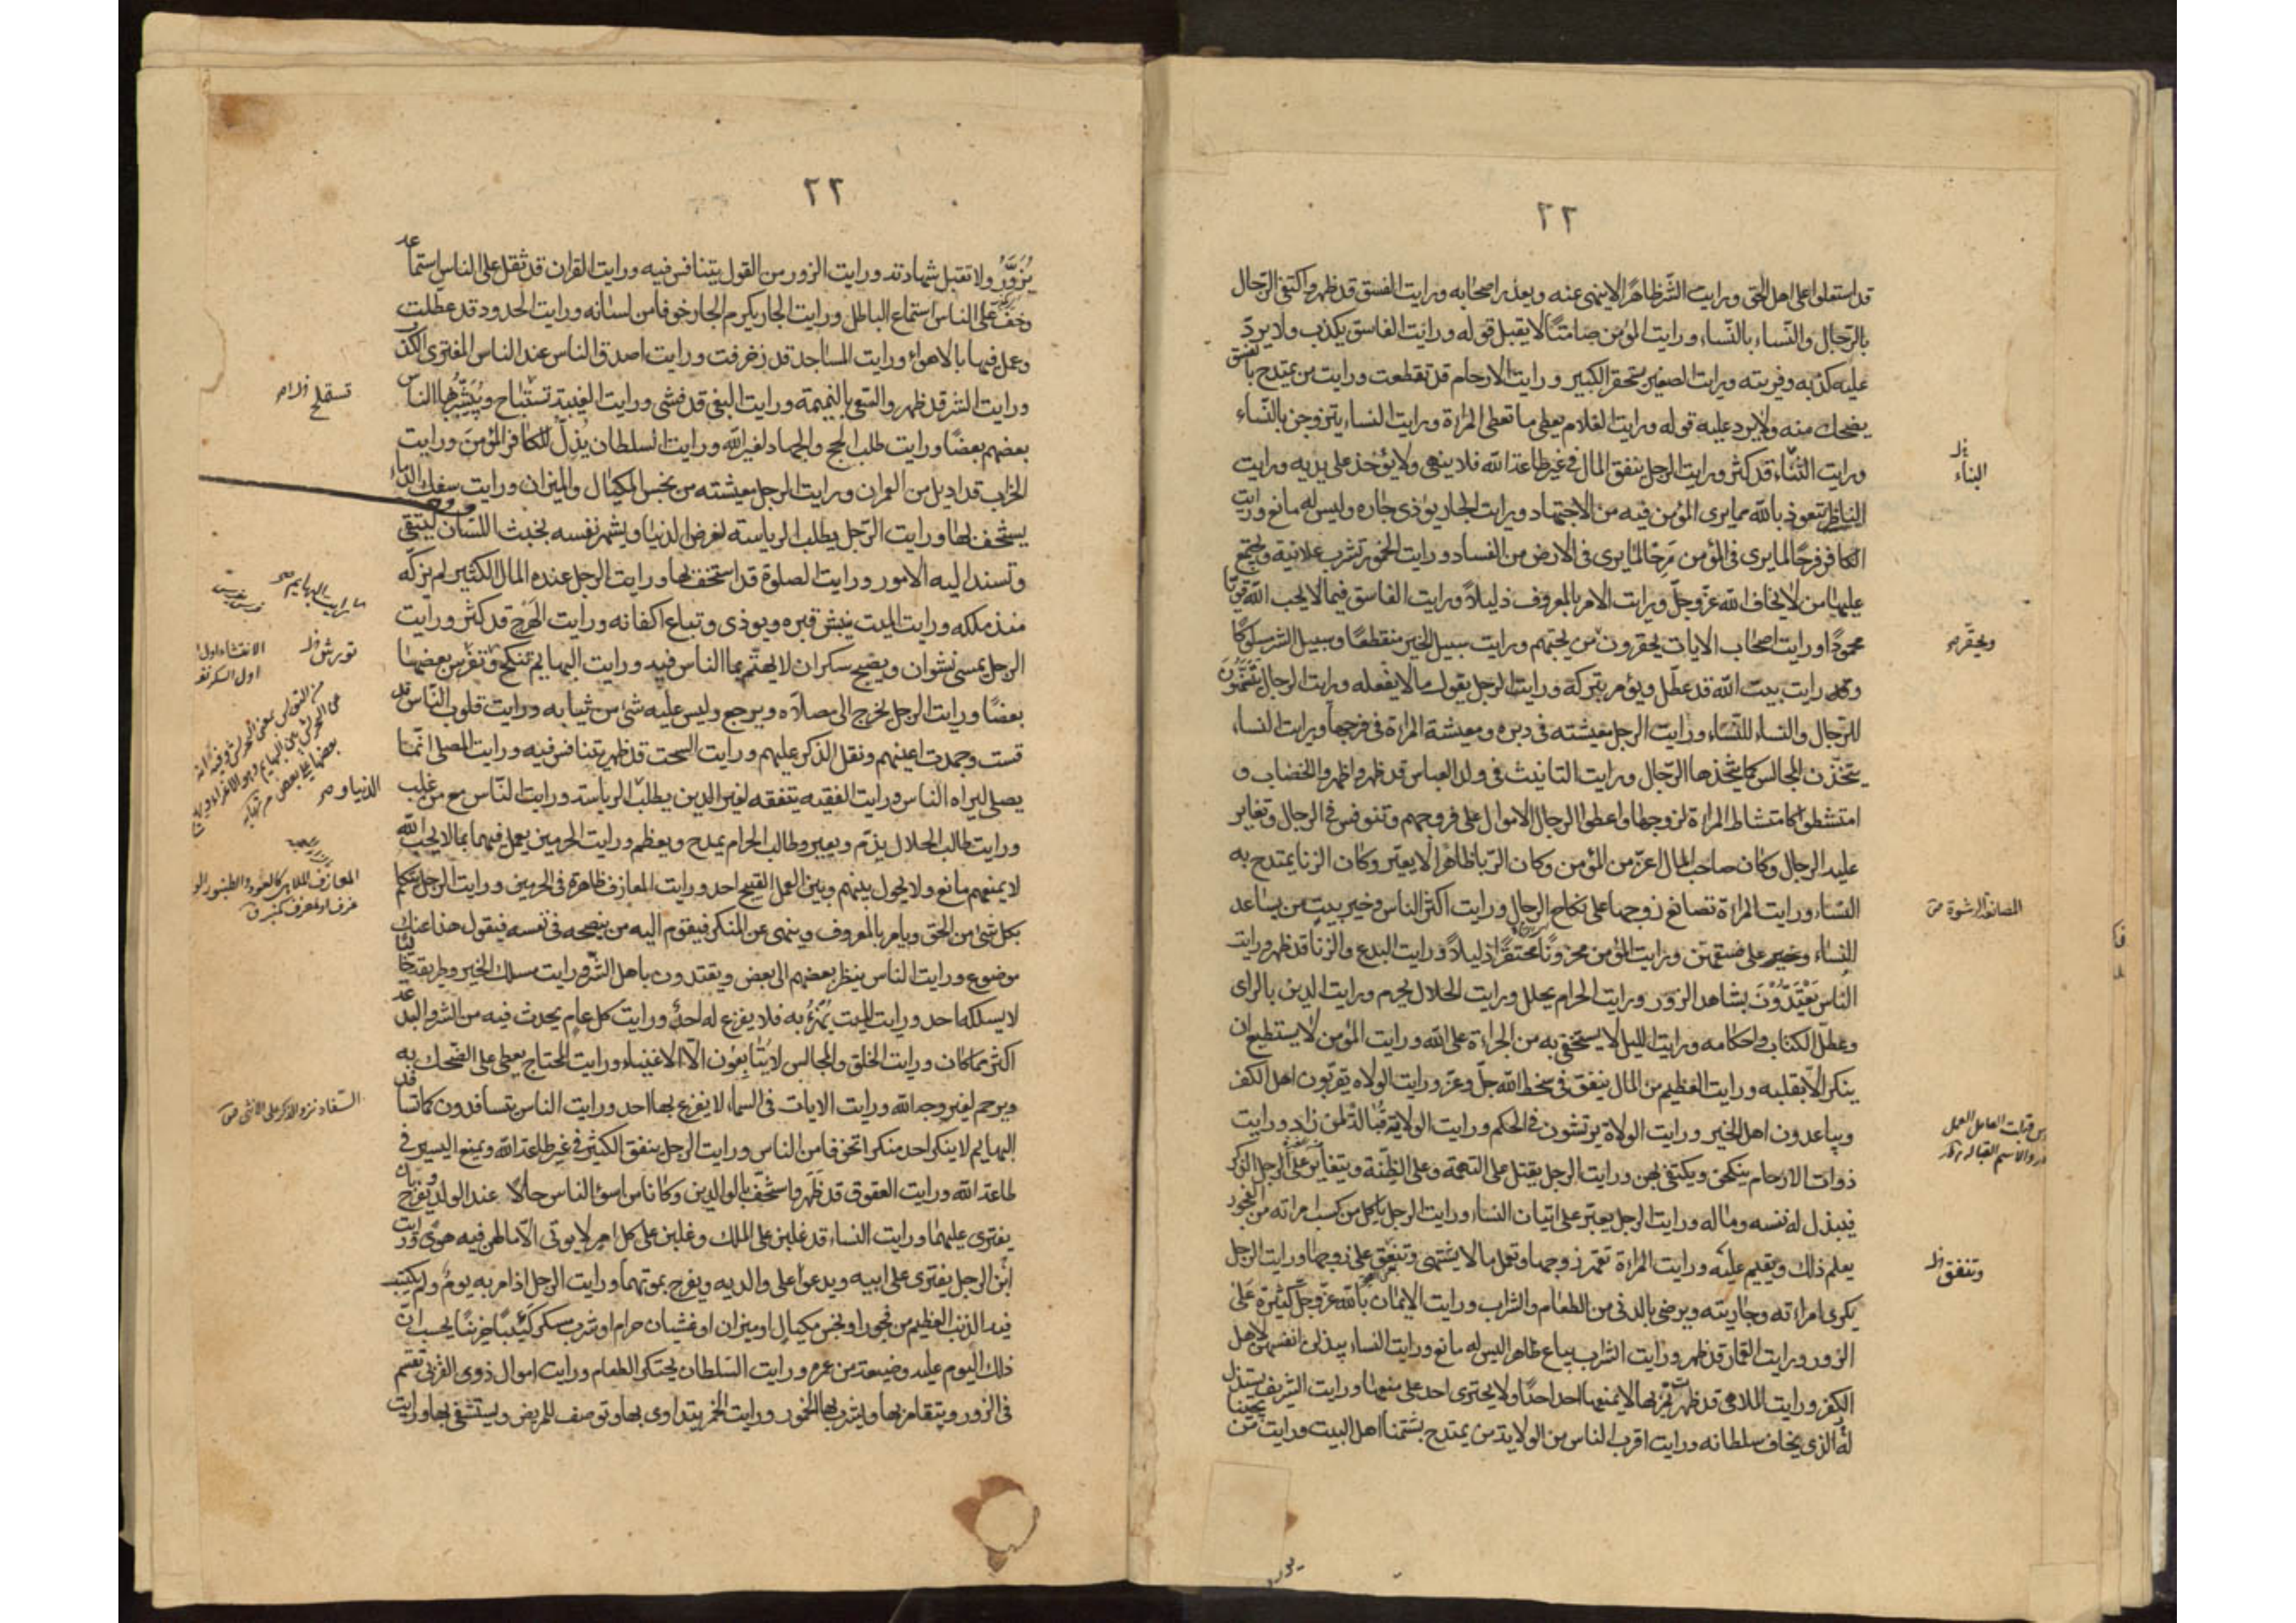 ٢٢
قد استعلوا على اهل الحق ورايت الشّر ظاهرًا لا ينهى عنه ويعذر اصحابه ورايت الفسق قد ظهر واكتفى الرّجال
بالرّجال والنّساء بالنّساء ورايت المؤمن صامتًا لا يقبل قوله ورايت الفاسق يكذب ولا يردّ
عليه كذبه وفريته ورايت الصغير يستحقر الكبير ورايت الارحام قد تقطعت ورايت من يمتدح بالفسق
يضحك منه ولا يرد عليه قوله ورايت الغلام يعطى ما تعطى المراة ورايت النساء يتزوجن بالنّساء
ورايت الثناء قد كثر ورايت الرجل ينفق المال فى غير طاعة الله فلا ينهى ولا يؤخذ على يديه ورايت
الناظر يتعوذ بالله مما يرى المؤمن فيه من الاجتهاد ورايت الجار يؤذى جاره وليس له مانع ورايت
الكافر فرحًا لما يرى فى المؤمن مرحًا لما يرى فى الارض من الفساد ورايت الخمور تشرب علانية ويجتمع
عليها من لا يخاف الله عزّ وجلّ ورايت الامر بالمعروف ذليلاً ورايت الفاسق فيما لا يحب الله قويّا
محمودًا ورايت اصحاب الايات يحقرون من يحبهم ورايت سبيل الخير منقطعًا وسبيل الشر مسلوكًا
ورايت بيت الله قد عطّل ويؤمر بتركه ورايت الرجل يقول ما لا يفعله ورايت الرجال
للرّجال والنساء للنّساء ورايت الرجل معيشته فى دبره ومعيشة المراة فى فرجها ورايت النساء
يتخذن المجالس كما يتخذها الرّجال ورايت التانيث فى ولد العباس قد ظهر واظهروا الخضاب و
امتشطوا كما تمتشط المراة لزوجها واعطوا الرجال الاموال على فروجهم وتنوفس فى الرجال وتغاير
عليه الرجال وكان صاحب المال اعزّ من المؤمن وكان الرّبا ظاهرًا لا يعيّر وكان الزنا يمتدح به
النّساء ورايت المراة تصانع زوجها على نكاح الرجال ورايت اكثر الناس وخير بيت من يساعد
النساء على فسقهن ورايت المؤمن محزونًا محتقرًا ذليلاً ورايت البدع والزنا قد ظهر ورايت
النّاس يَعْتَدُّوْنَ بشاهد الزور ورايت الحرام يحلل ورايت الحلال يحرم ورايت الدين بالراى
وعطّل الكتاب واحكامه ورايت الليل لا يستخفى به من الجراءة على الله ورايت المؤمن لا يستطيع ان
ينكر الّا بقلبه ورايت العظيم من المال ينفق فى سخط الله جلّ وعزّ ورايت الولاة يقرّبون اهل الكفر
ويباعدون اهل الخير ورايت الولاة يرتشون فى الحكم ورايت الولاية قبالة لمن زاد ورايت
ذوات الارحام ينكحن ويكتفى بهن ورايت الرجل يقتل على التهمة وعلى الظنة ويتغاير على الرجل الذكر
فيبذل له نفسه وماله ورايت الرجل يعيّر على اتيان النساء ورايت الرجل ياكل من كسب امراته من الفجور
يعلم ذلك ويقيم عليه ورايت المراة تقهر زوجها وتعمل ما لا يشتهى وتنفق على زوجها ورايت الرجل
يكرى امراته وجاريته ويرضى بالدنى من الطعام والشراب ورايت الايمان بالله عزّ وجلّ كثيرة على
الزور ورايت القمار قد ظهر ورايت الشراب يباع ظاهرا ليس له مانع ورايت النساء يبذلن انفسهن لاهل
الكفر ورايت الملاهى قد ظهرت يمرّ بها لا يمنعها احد احدًا ولا يجترى احد على منعها ورايت الشريف يستذل
له الذى يخاف سلطانه ورايت اقرب الناس من الولاة من يمتدح بشتمنا اهل البيت ورايت من يحبنا
البناء
ويحقر
المصانعة الرشوة
وتنفق
٢٢
يُزَوَّرُ ولا تقبل شهادته ورايت الزور من القول يتنافس فيه ورايت القران قد ثقل على الناس استماعه
وخفّ على الناس استماع الباطل ورايت الجار يكرم الجار خوفا من لسانه ورايت الحدود قد عطلت
وعمل فيها بالاهواء ورايت المساجد قد زخرفت ورايت اصدق الناس عند الناس المفترى الكذب
ورايت الشر قد ظهر والسعى بالنميمة ورايت البغى قد فشى ورايت الغيبة تستباح ويبشّر بها الناس
بعضهم بعضًا ورايت طلب الحج والجهاد لغير الله ورايت السلطان يُذِلّ للكافر المؤمنَ ورايت
الخراب قد اديل من العمران ورايت الرجل معيشته من بخس المكيال والميزان ورايت سفك الدماء
يستخف بها ورايت الرّجل يطلب الرياسة لعرض الدنيا ويشهر نفسه بخبث اللسان ليتقى
وتسند اليه الامور ورايت الصلوة قد استخف بها ورايت الرجل عنده المال الكثير لم يزكّه
منذ ملكه ورايت الميت ينبش قبره ويوذى وتباع اكفانه ورايت الهَرْج قد كثر ورايت
الرجل يمسى نشوان ويصبح سكران لا يهتّم بما الناس فيه ورايت البهايم تنكح وتفرس بعضها
بعضًا ورايت الرجل يخرج الى مصلّاه ويرجع وليس عليه شئ من ثيابه ورايت قلوب النّاس قد
قست وجمدت اعينهم وثقل الذكر عليهم ورايت السحت قد ظهر يتنافس فيه ورايت المصلى انّما
يصلى ليراه الناس ورايت الفقيه يتفقه لغير الدين يطلب الرياسة ورايت النّاس مع من غلب
ورايت طالب الحلال يذمّ ويعير وطالب الحرام يمدح ويعظم ورايت الحرمين يعمل فيهما بما لا يحب الله
لا يمنعهم مانع ولا يحول بينهم وبين العمل القبيح احد ورايت المعازف ظاهرة فى الحرمين ورايت الرجل يتكلم
بكل شئ من الحق ويامر بالمعروف وينهى عن المنكر فيقوم اليه من ينصحه فى نفسه فيقول هذا عنك
موضوع ورايت الناس ينظر بعضهم الى بعض ويقتدون باهل الشّر ورايت مسلك الخير وطريقه خاليا
لا يسلكه احد ورايت الميت يُهْزَءُ به فلا يفزع له احد ورايت كل عام يحدث فيه من الشر والبدعة
اكثر مما كان ورايت الخلق والمجالس لا يُتَابِعُون الّا الاغنياء ورايت المحتاج يعطى على الضحك به
ويرحم لغير وجه الله ورايت الايات فى السماء لا يفزع بها احد ورايت الناس يتسافدون كما تتسافد
البهايم لا ينكر احد منكرا تخوفا من الناس ورايت الرجل ينفق الكثير فى غير طاعة الله ويمنع اليسير فى
طاعة الله ورايت العقوق قد ظَهَرَ واستخفّ بالوالدين وكانا من اسوء الناس حالًا عند الولد ويفرح بان
يفترى عليهما ورايت النساء قد غلبن على الملك وغلبن على كل امر لا يؤتى الّا ما لهن فيه هوى ورايت
ابْن الرجل يفترى على ابيه ويدعو على والديه ويفرح بموتهما ورايت الرجل اذا مر به يوم ولم يكتسب
فيه الذنب العظيم من فجور او بخس مكيال او ميزان او غشيان حرام او شرب مسكر كَئيبًا حزينًا يحسب انّ
ذلك اليوم عليه وضيعة من عمره ورايت السّلطان يحتكر الطعام ورايت اموال ذوى القربى تقسم
فى الزور ويتقامر بها ويشرب بها الخمور ورايت الخمر يتداوى بها وتوصف للمريض ويستشفى بها ورايت